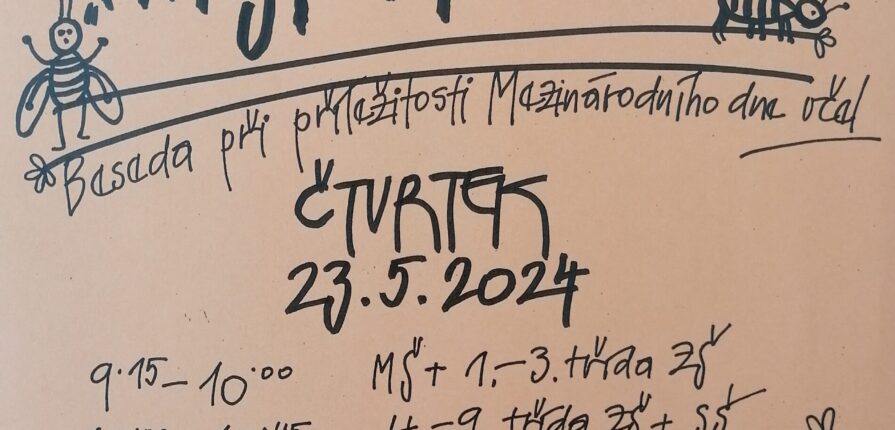 Beseda při příležitosti Mezinárodního dne včel
ČTVRTEK
23.5.2024
9.15 – 10.00 MŠ + 1.–3. třída ZŠ
4.–9. třída ZŠ + SŠ